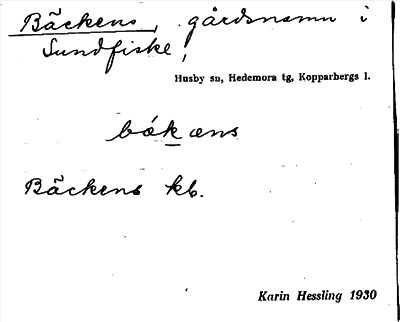 Bäckens, gårdsnamn i
Sundfiske,
Husby sn, Hedemora tg, Kopparbergs l.
bókæns
Bäckens kb.
Karin Hessling 1930